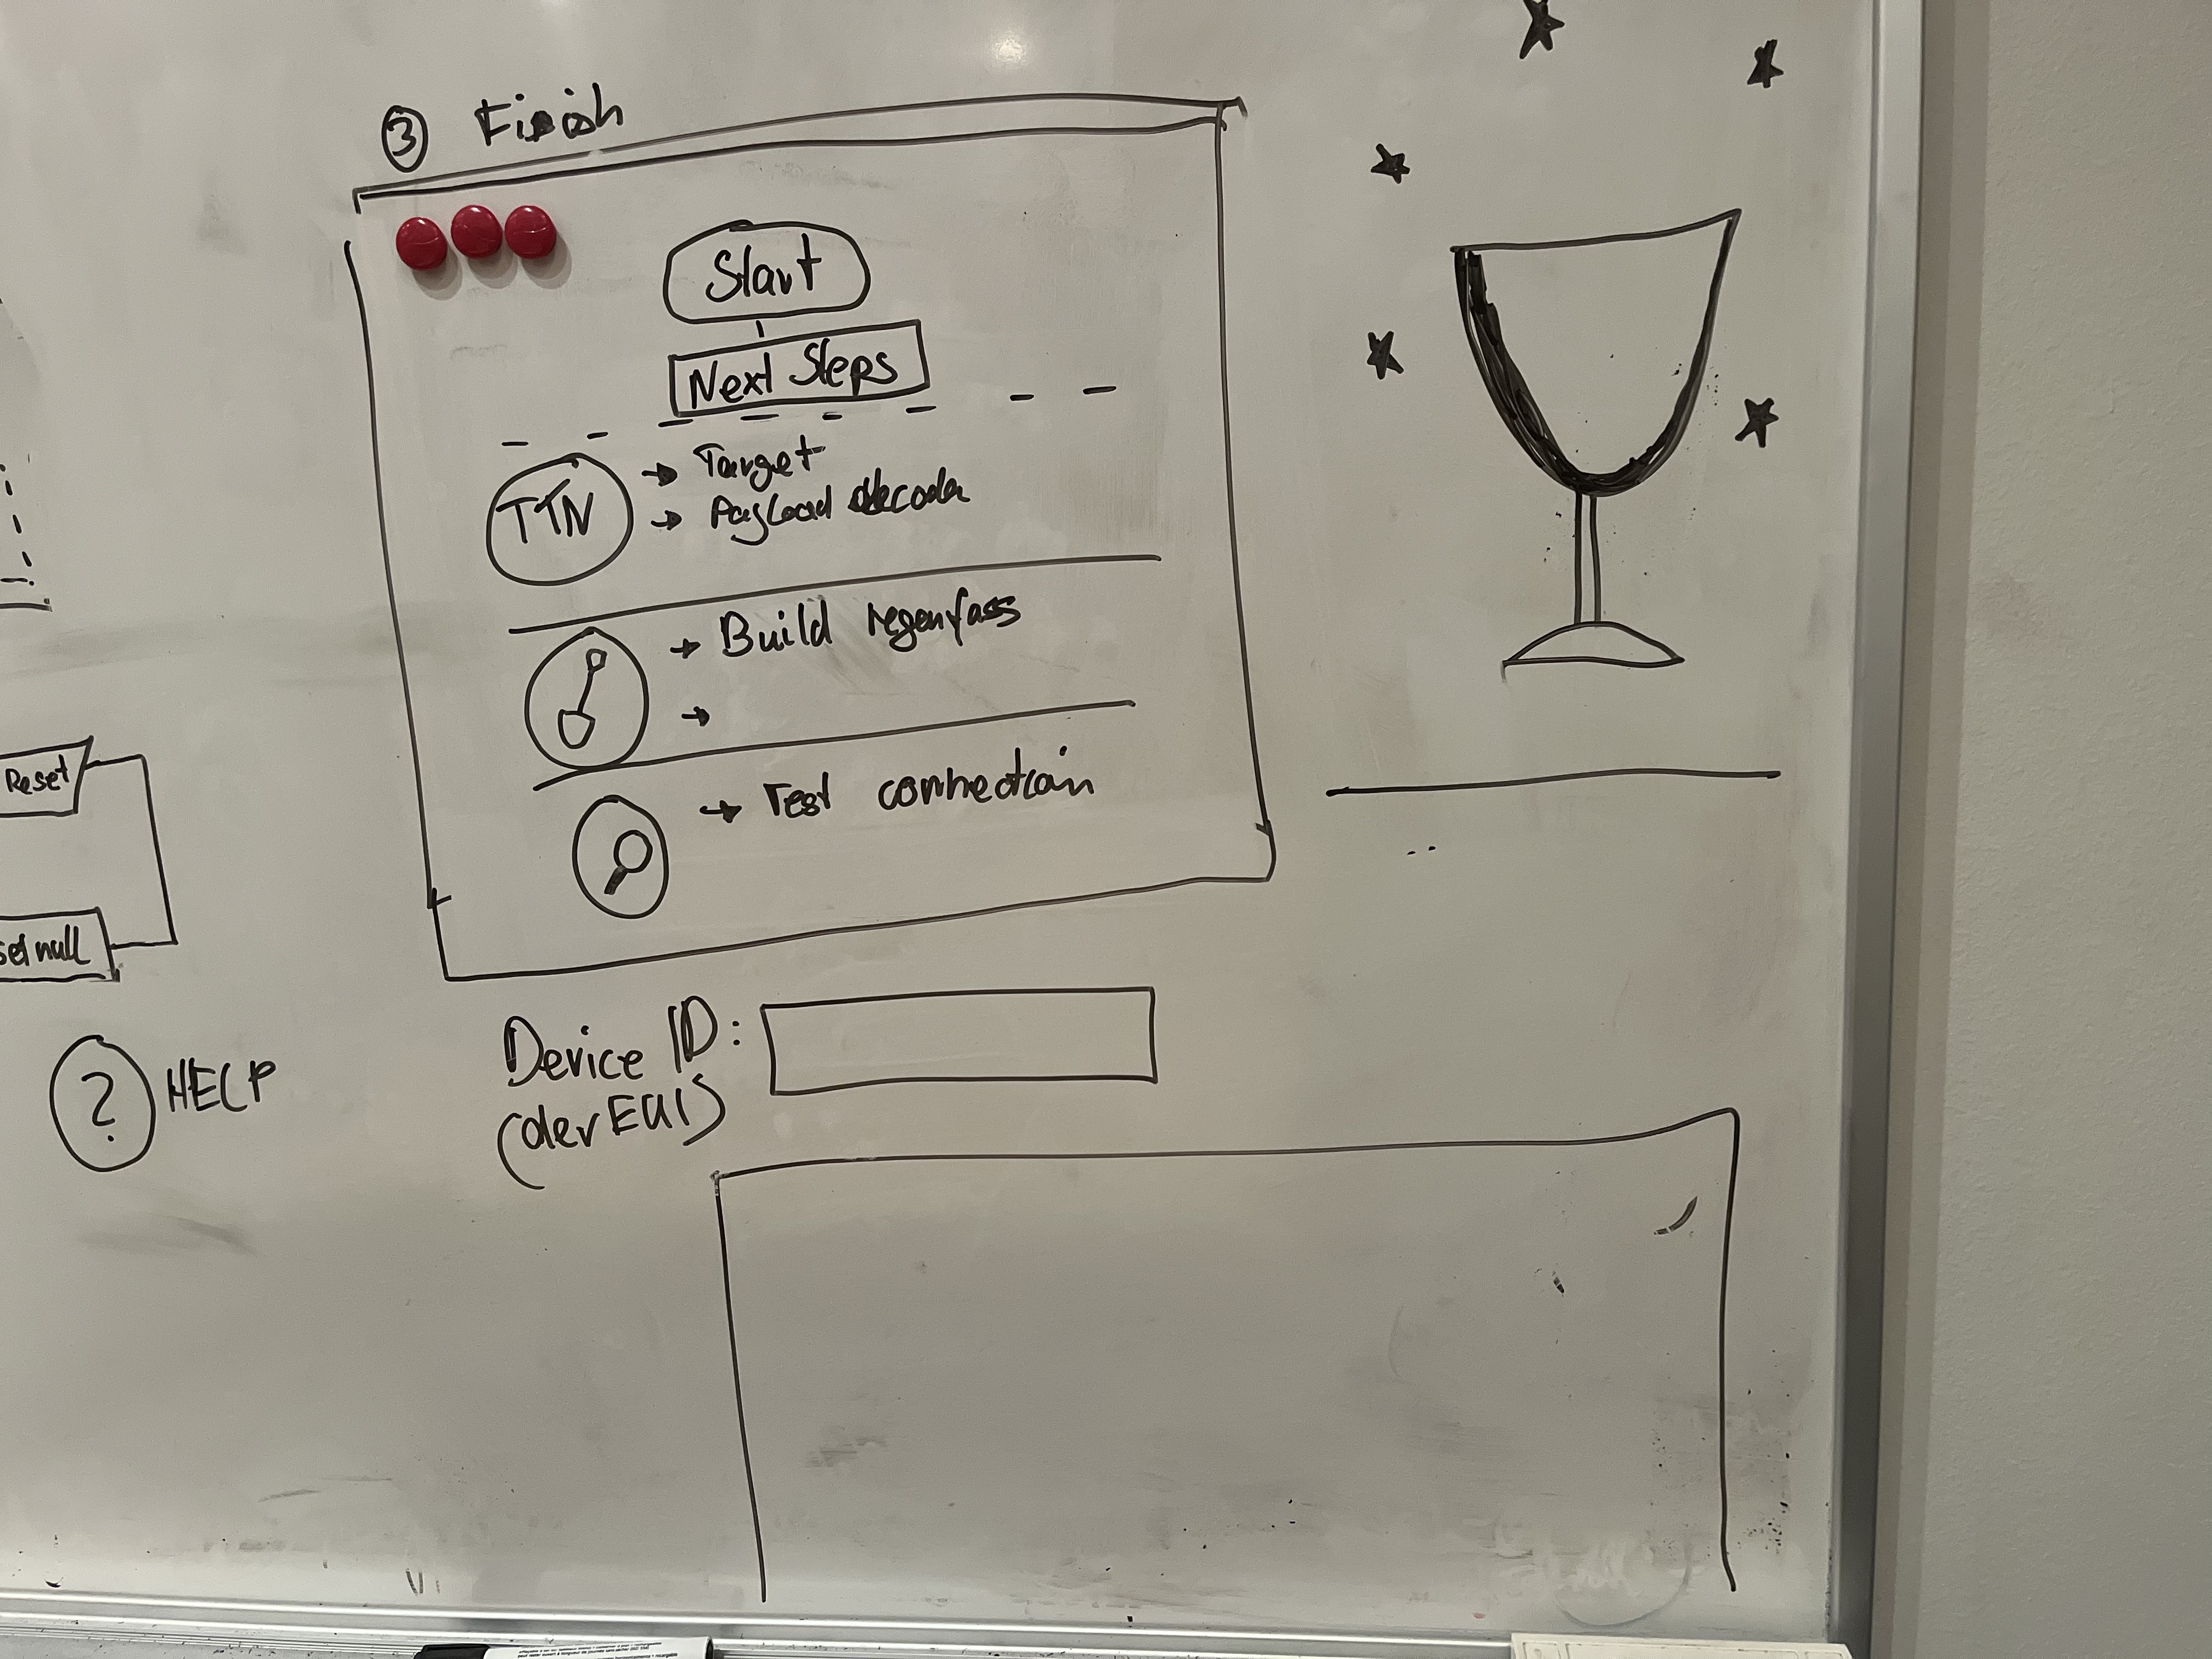 3 Finish
Start
Next Steps
TTN → Target
→ Payload decoder
→ Build regenfass
→
→ Test connection
Reset
set null
? HELP
Device ID:
(devEUI)